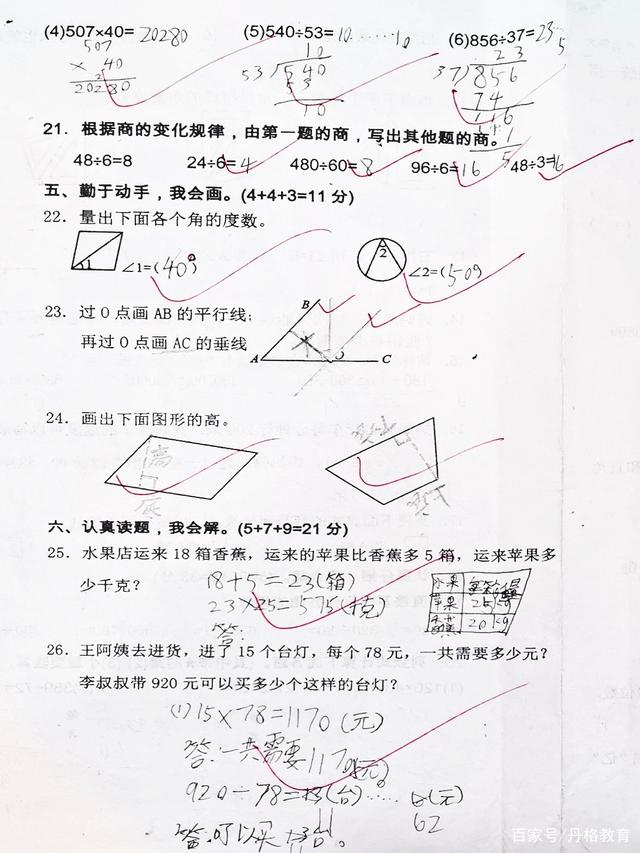 (4)507×40=20280 (5)540÷53=10……10 (6)856÷37=23…5
507 10 23
× 40 53 540 37 856
20280 53 74
10 116
111
5
21. 根据商的变化规律，由第一题的商，写出其他题的商。
48÷6=8 24÷6=4 480÷60=8 96÷6=16 48÷3=16
五、勤于动手，我会画。(4+4+3=11 分)
22. 量出下面各个角的度数。
1 ∠1=(40°) 2 ∠2=(50°)
23. 过 O 点画 AB 的平行线；
再过 O 点画 AC 的垂线
B
A O C
24. 画出下面图形的高。
高
底
六、认真读题，我会解。(5+7+9=21 分)
25. 水果店运来 18 箱香蕉，运来的苹果比香蕉多 5 箱，运来苹果多
少千克？
18+5=23(箱)
23×25=575(千克)
答：
水果
苹果 25kg
香蕉 20kg
26. 王阿姨去进货，进了 15 个台灯，每个 78 元，一共需要多少元？
李叔叔带 920 元可以买多少个这样的台灯？
(1)15×78=1170(元)
答：一共需要1170(元)
920÷78= (台)…… (元)
11 62
答：可以买11台。
百家号/丹格教育